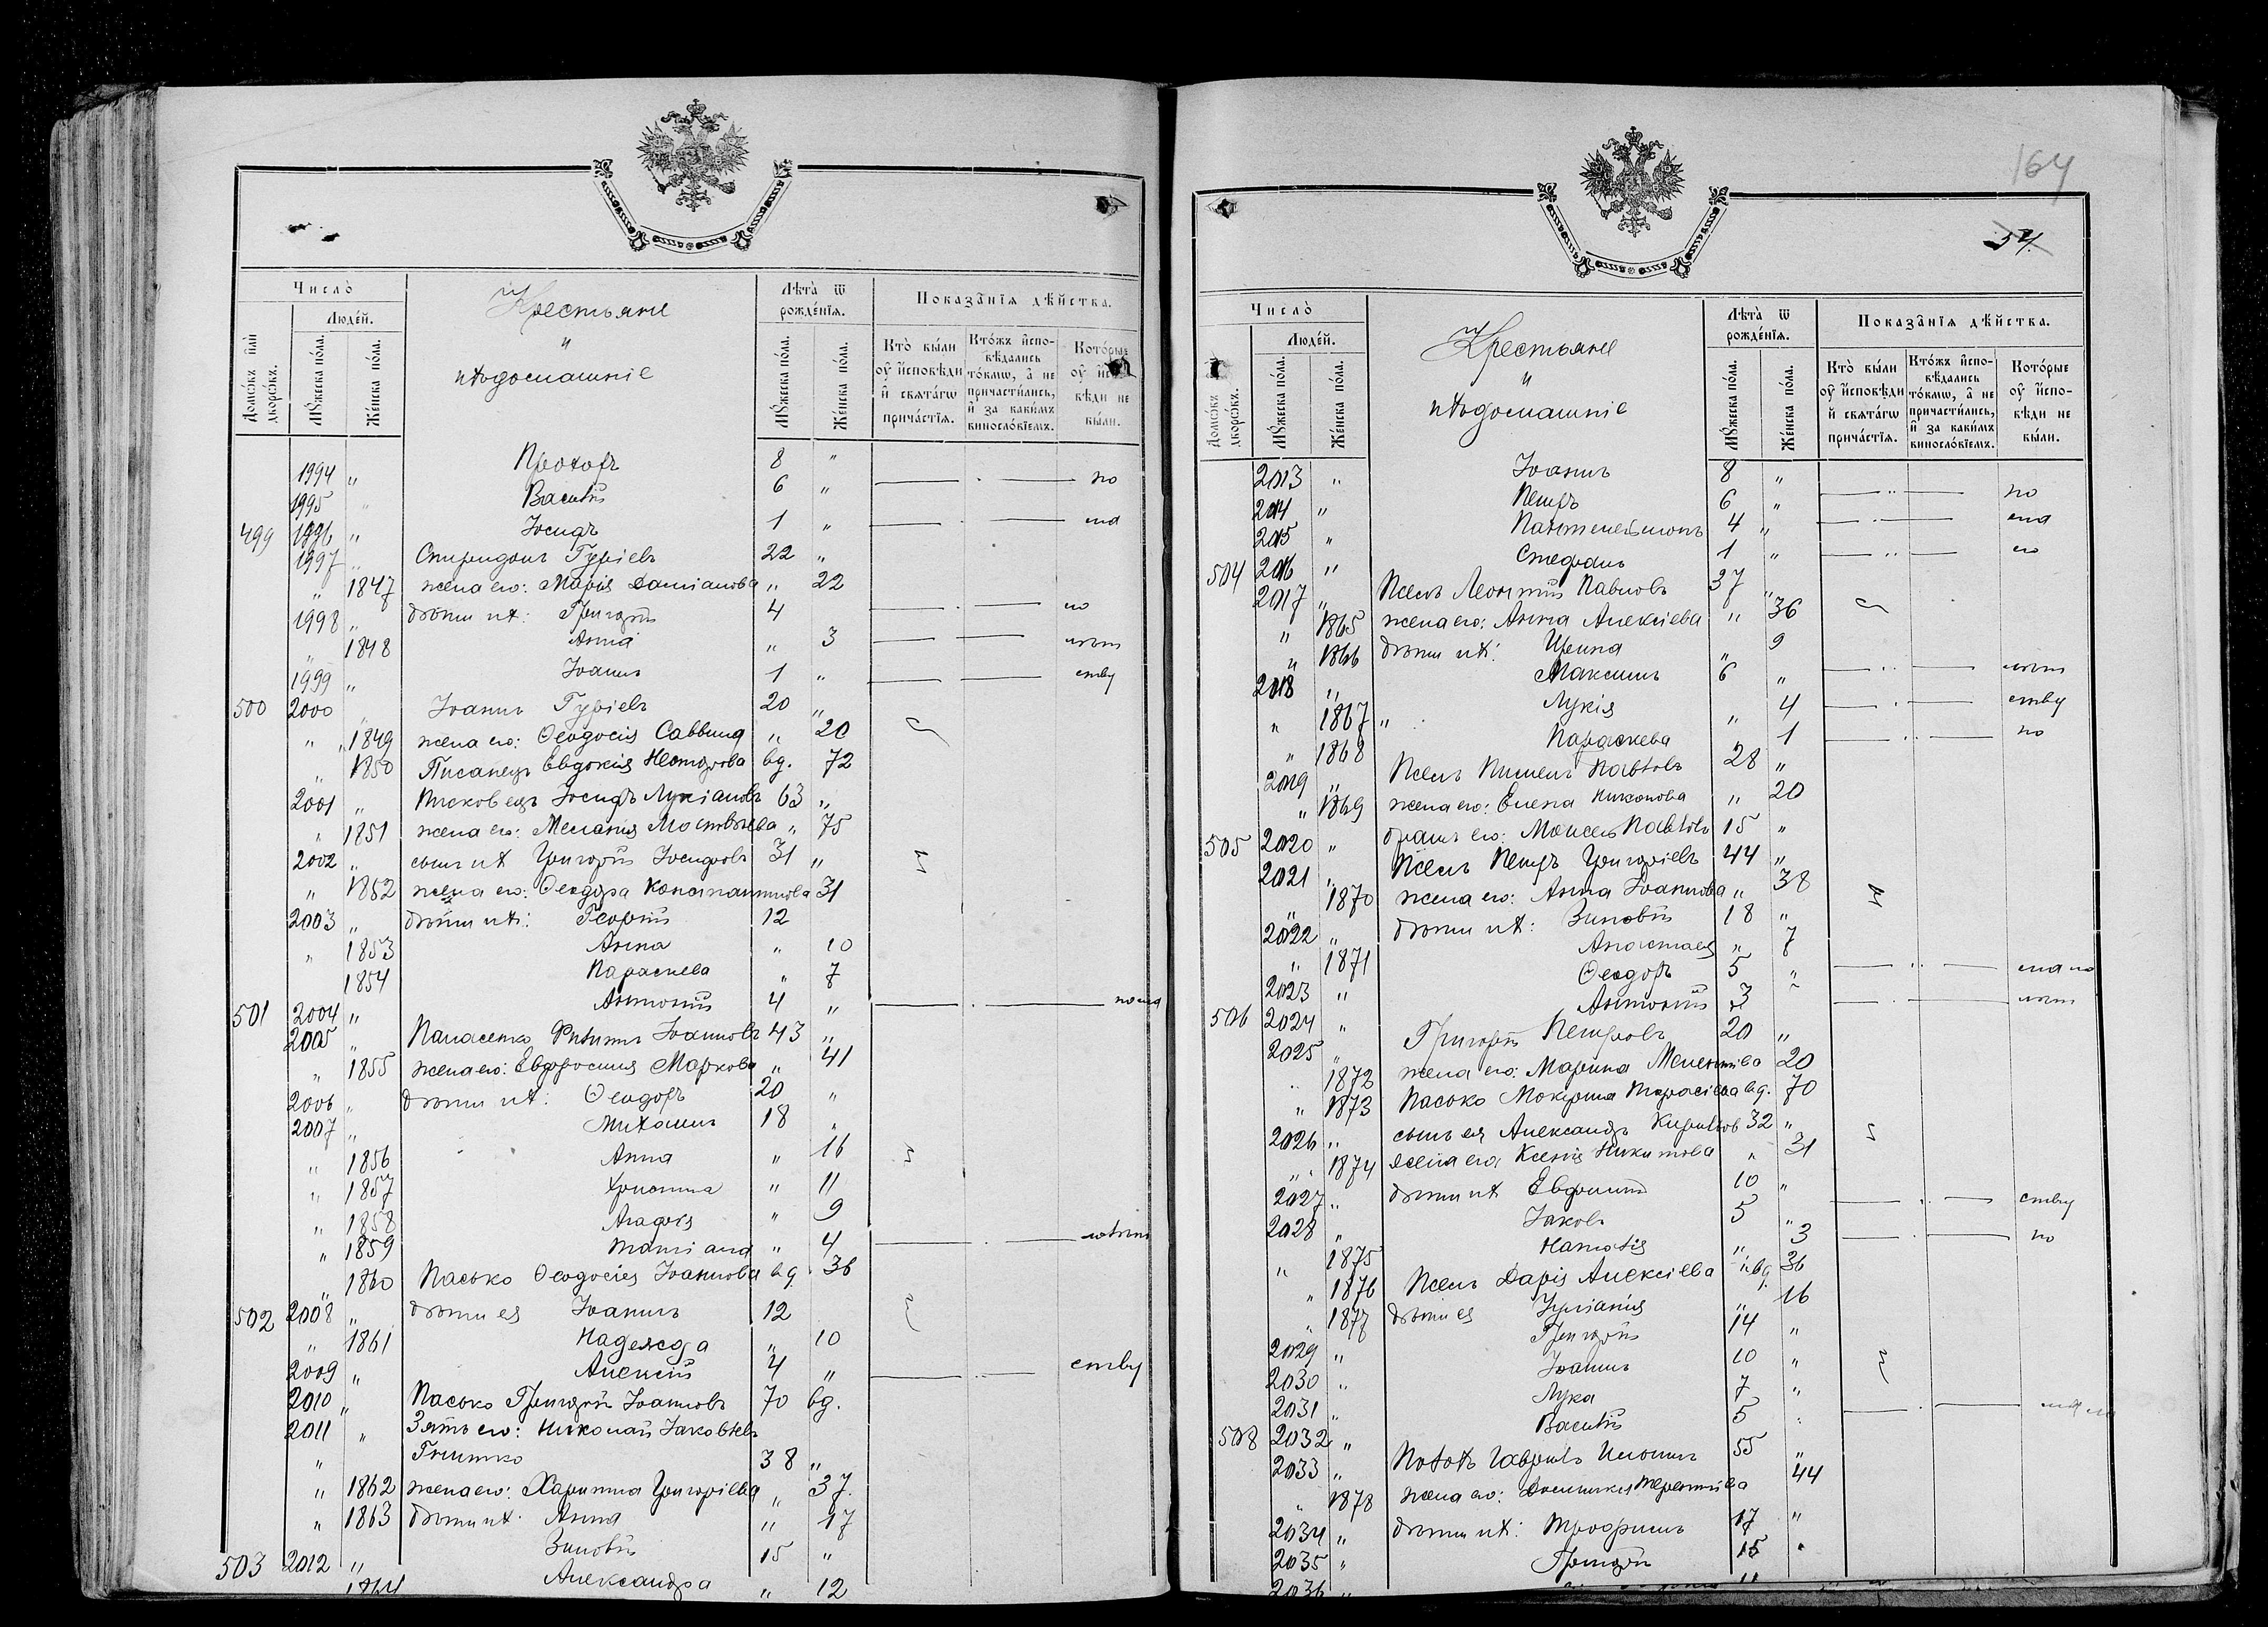 Число̀
Людéй.
Домѡ́въ и҆лѝ дворѡ́въ.
Мꙋ́жеска по́ла.
Же́нска по́ла.
Крестьяне
и
ихъ домашніе
Лѣта̀ ѿ рожде́нїѧ.
Мꙋ́жеска по́ла.
Же́нска по́ла.
Показа̑нїѧ дѣ́йства.
Кто̀ бы́ли оу҆ и҆сповѣ́ди и҆ свѧта́гѡ прича́стїѧ.
Кто́жъ и҆сповѣ́дались то́кмѡ, а҆ не причасти́лись, и҆ за каки́мъ виносло́вїемъ.
Кото́рые оу҆ и҆сповѣ́ди не бы́ли.
1994 " Прохоръ 8 " по
1995 " Василій 6 "
499 1996 " Іосифъ 1 "
1997 " Спиридонъ Гуріевъ 22 "
" 1847 жена его: Марія Даміанова " 22
1998 " дѣти ихъ: Григорій 4
" 1848 Анна " 3
1999 " Іоаннъ 1 "
500 2000 Іоаннъ Гуріевъ 20 "
" " 1849 жена его: Ѳеодосія Саввина " 20
" 1850 Писанецъ Евдокія Несторова вд. 72
2001 " Писковецъ Іосифъ Лукіановъ 63 "
" 1851 жена его: Меланія Матвѣева " 75
2002 " сынъ ихъ Григорій Іосифовъ 31 "
" 1852 жена его: Ѳеодора Константинова 31
2003 " дѣти ихъ: Георгій 12
" 1853 Анна " 10
1854 Параскева " 7
501 2004 " Антоній 4 "
2005 " Панасенко Филиппъ Іоанновъ 43 "
" 1855 жена его: Евфросинія Маркова " 41
2006 " дѣти ихъ: Ѳеодоръ 20 "
2007 " Михаилъ 18 "
" 1856 Анна " 16
" 1857 Христина " 11
" 1858 Агафія " 9
" 1859 Татіана " 4
" 1860 Пасько Ѳеодосія Іоаннова вд. 36
502 2008 " дѣти ея Іоаннъ 12
" 1861 Надежда " 10
2009 " Алексій 4 "
2010 " Пасько Григорій Іоанновъ 70 вд.
2011 " Зять его: Николай Іаковлевъ
" Гнитко 38 "
" 1862 жена его: Харитина Григоріева " 37.
" 1863 дѣти ихъ: Анна " 17
503 2012 " Зиновій 15 "
1864 Александра " 12
164
54.
Число̀
Людéй.
Домѡ́въ дворѡ́въ.
Мꙋ́жеска по́ла.
Же́нска по́ла.
Крестьяне
и
ихъ домашніе
Лѣта̀ ѿ рожде́нїѧ.
Мꙋ́жеска по́ла.
Же́нска по́ла.
Показа̑нїѧ дѣ́йства.
Кто̀ бы́ли оу҆ и҆сповѣ́ди и҆ свѧта́гѡ прича́стїѧ.
Кто́жъ и҆сповѣ́дались то́кмѡ, а҆ не причасти́лись, и҆ за каки́мъ виносло́вїемъ.
Кото́рые оу҆ и҆сповѣ́ди не бы́ли.
2013 " Іоаннъ 8 " по
2014 " Петръ 6 "
2015 " Пантелеимонъ 4 "
504 2016 " Стефанъ 1 "
2017 " Леонтій Павловъ 37 "
" 1865 жена его: Анна Алексіева " 36
" 1866 дѣти ихъ: Ирина " 9
2018 " Максимъ 6 "
" 1867 " Лукія " 4
" 1868 Параскева " 1
2019 " Пименъ Павловъ 28 "
" 1869 жена его: Елена Никонова " 20
505 2020 " братъ его: Моисей Павловъ 15 "
2021 " Петръ Григоріевъ 44 "
" 1870 жена его: Анна Іоаннова " 38
2022 " дѣти ихъ: Зиновій 18 "
" 1871 Анастасія " 7
2023 " Ѳеодоръ 5 "
506 2024 " Антоній 3
2025 " Григорій Петровъ 20 "
" 1872 жена его: Марина Мелентіева 20
" 1873 Пасько Мокрина Тарасіева вд. 70
2026 " сынъ ея Александръ Кирилловъ 32 "
" 1874 жена его Ксенія Никитова " 31
2027 " дѣти ихъ Евфимій 10 "
2028 " Іаковъ 5 "
" 1875 Наталія " 3
" 1876 Дарія Алексіева вд. 36
" 1877 дѣти ея Іуліанія " 16
2029 " Григорій 14 "
2030 " Іоаннъ 10 "
2031 " Лука 7 "
508 2032 " Василій 5
2033 " Гавріилъ 55 "
" 1878 жена его: Домникія Терентіева 44
2034 " дѣти ихъ: Трофимъ 17 "
2035 " Григорій 15 "
2036 "